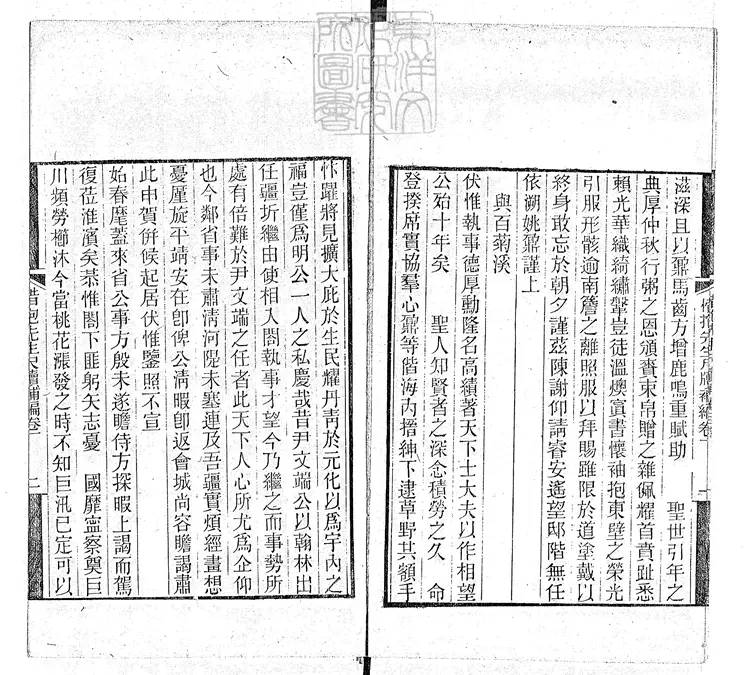 滋深且以鼐馬齒方增鹿鳴重賦助　聖世引年之
典厚仲秋行粥之恩頒賚束帛贈之雜佩耀首賁趾悉
賴光華織綺繡鞶豈徒溫燠寘書懷袖抱東壁之榮光
引服形骸逾南簷之離照服以拜賜雖限於道塗戴以
終身敢忘於朝夕謹茲陳謝仰請睿安遙望邸階無任
依溯姚鼐謹上
與百菊溪
伏惟執事德厚勳隆名高績著天下士大夫以作相望
公殆十年矣　聖人知賢者之深念積勞之久　命
登揆席實協羣心鼐等偕海內搢紳下逮草野共額手
忭躍將見擴大庇於生民耀丹靑於元化以爲宇內之
福豈僅爲明公一人之私慶哉昔尹文端公以翰林出
任疆圻繼由使相入閣執事才望今乃繼之而事勢所
處有倍難於尹文端之任者此天下人心所尤爲企仰
也今鄰省事未肅淸河隄未塞連及吾疆實煩經畫想
憂厪旋平靖安在卽俾公淸暇卽返會城尚容瞻謁肅
此申賀併候起居伏惟鑒照不宣
始春麾蓋來省公事方殷未遂瞻待方探暇上謁而駕
復莅淮濱矣恭惟閣下匪躬矢志憂　國靡寍察奠巨
川頻勞櫛沐今當桃花漲發之時不知巨汛已定可以
惜抱先生尺牘補編卷一
二